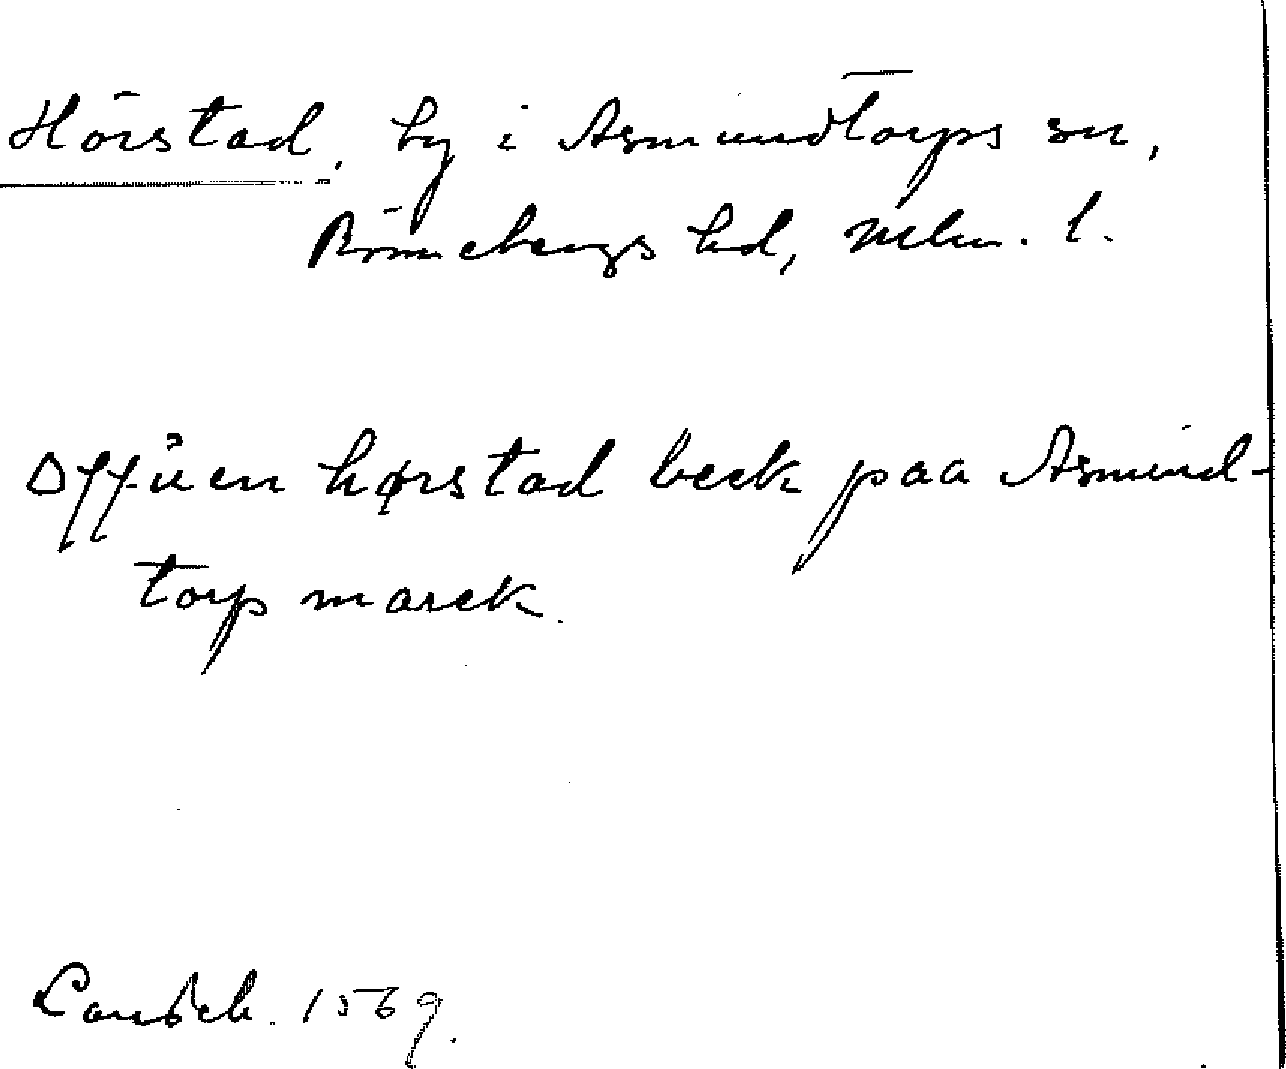 Hörstad, by i Asmundtorps sn,
Rönnebergs hd, Mlm. l.
Offuen hørstad beck paa Asmund-
torp marck.
Landeb. 1569.